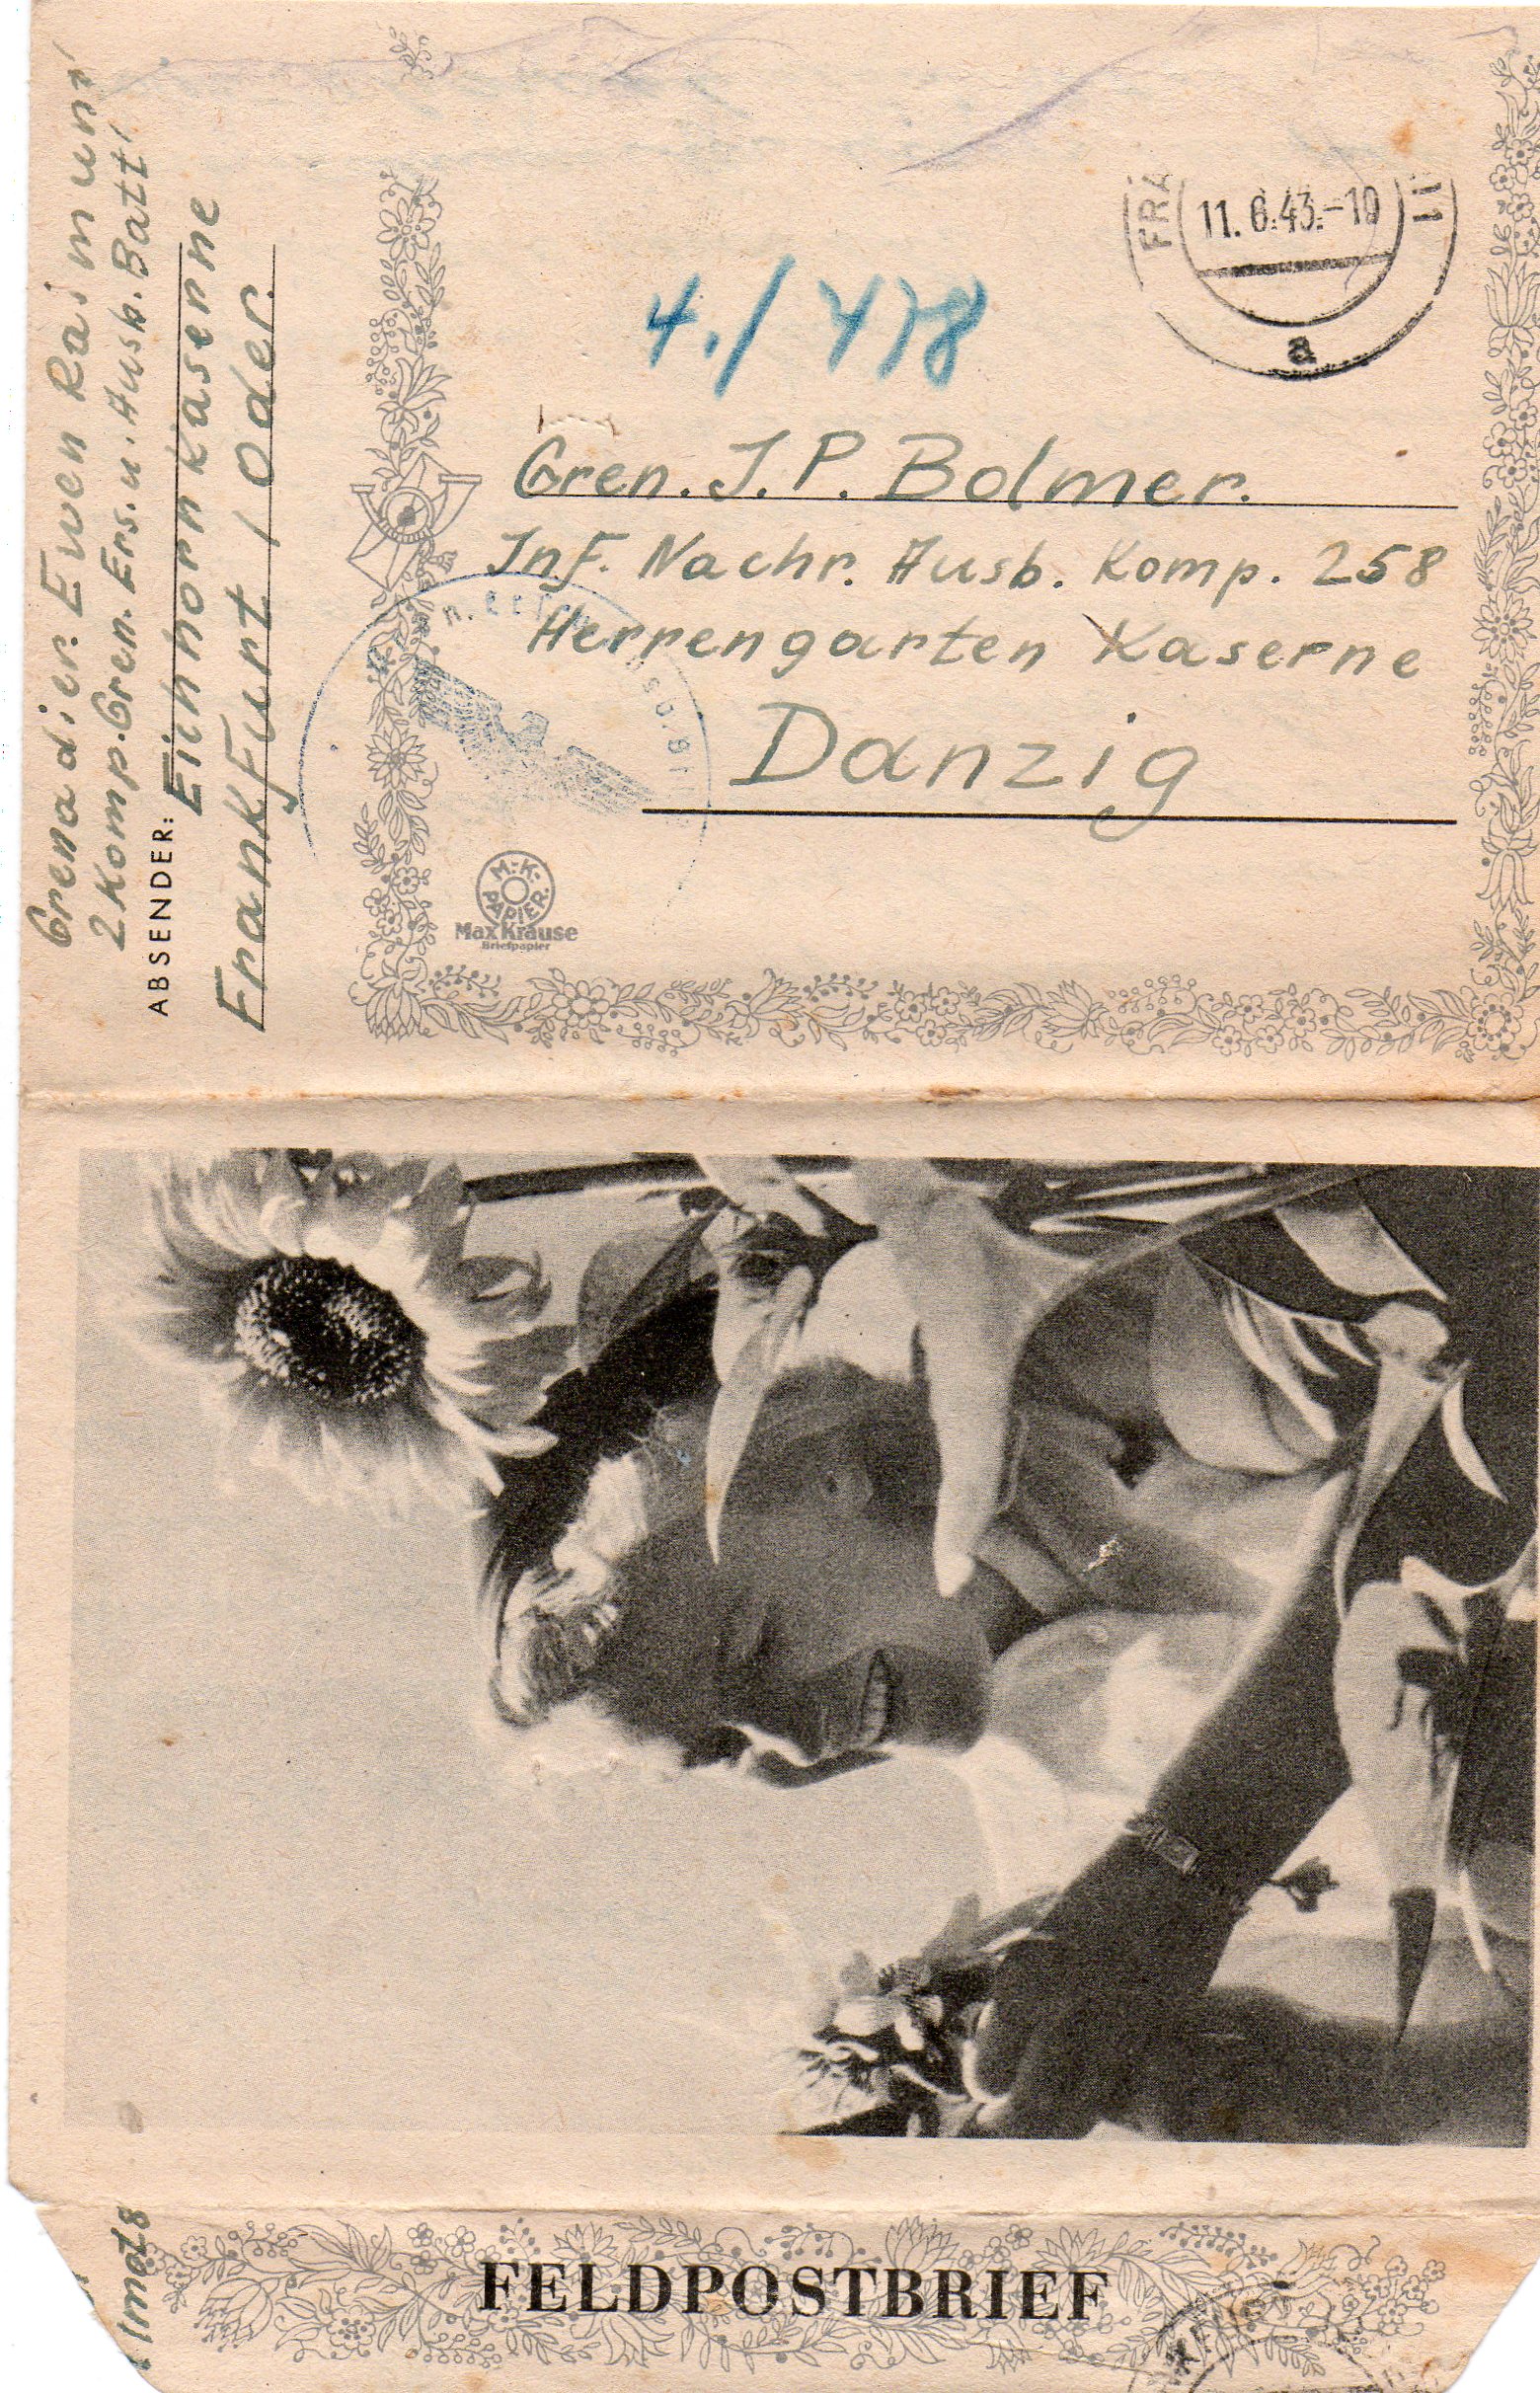 Grenadier Even Raimund
2 Komp. Gren. Ers. u. Ausb. Batl
ABSENDER: Eichhorn Kaserne
Frankfurt / Oder.
FRA
11.6.43.-10
a
4./478
Gren. J. P. Bolmer.
Inf. Nachr. Ausb. Komp. 258
Herrengarten Kaserne
Danzig
M.-K.-PAPIER.
Max Krause
Briefpapier
FELDPOSTBRIEF